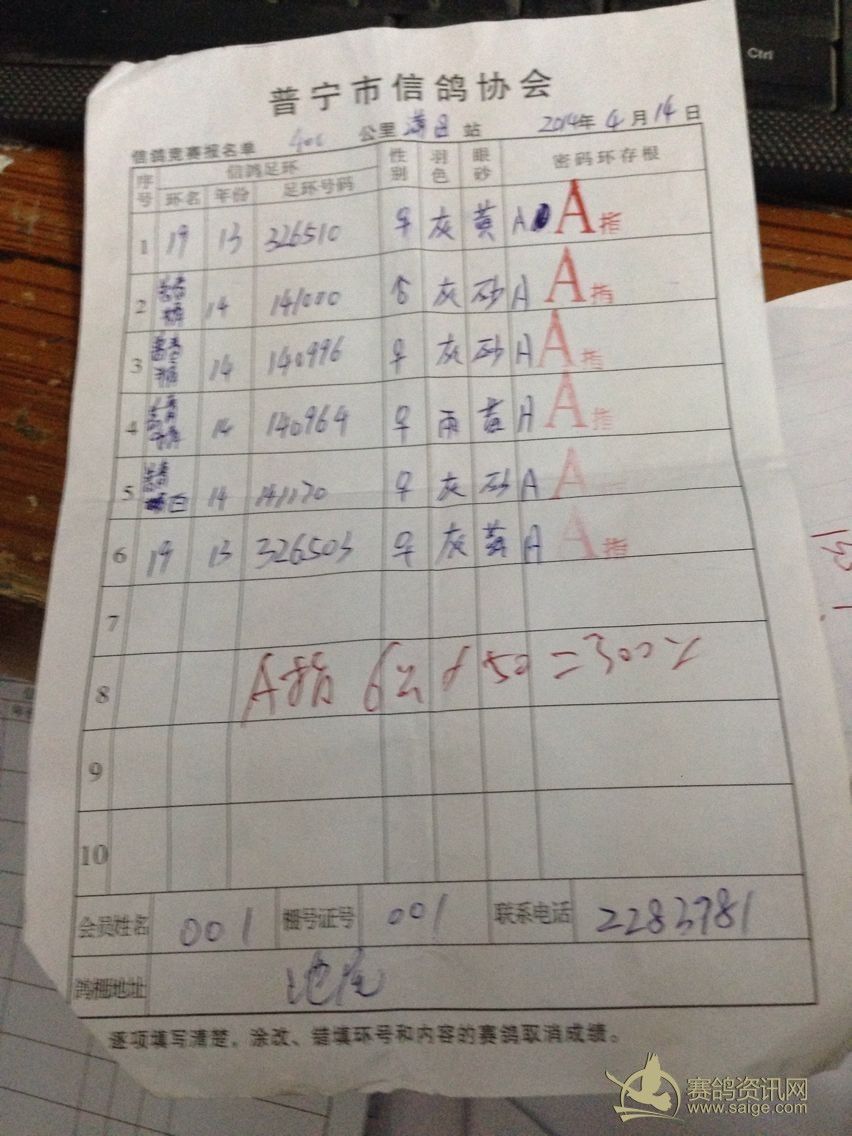 Ctrl
普宁市信鸽协会
信鸽竞赛报名单 400 公里 站 2014年 4月 14日
序号 信鸽足环 性别 羽色 眼砂 密码环存根
环名 年份 足环号码
1 19 13 326510 ♀ 灰 黄 A A指
2 14 141000 灰 砂 A A指
3 14 140996 ♀ 灰 砂 A A指
4 14 140964 ♀ 雨 黄 A A指
5 14 141170 ♀ 灰 砂 A A
6 19 13 326503 ♀ 灰 黄 A A指
7
8 A指 6 50=300
9
10
会员姓名 001 棚号证号 001 联系电话 2283981
鸽棚地址
逐项填写清楚，涂改、错填环号和内容的赛鸽取消成绩。
赛鸽资讯网
www.saige.com